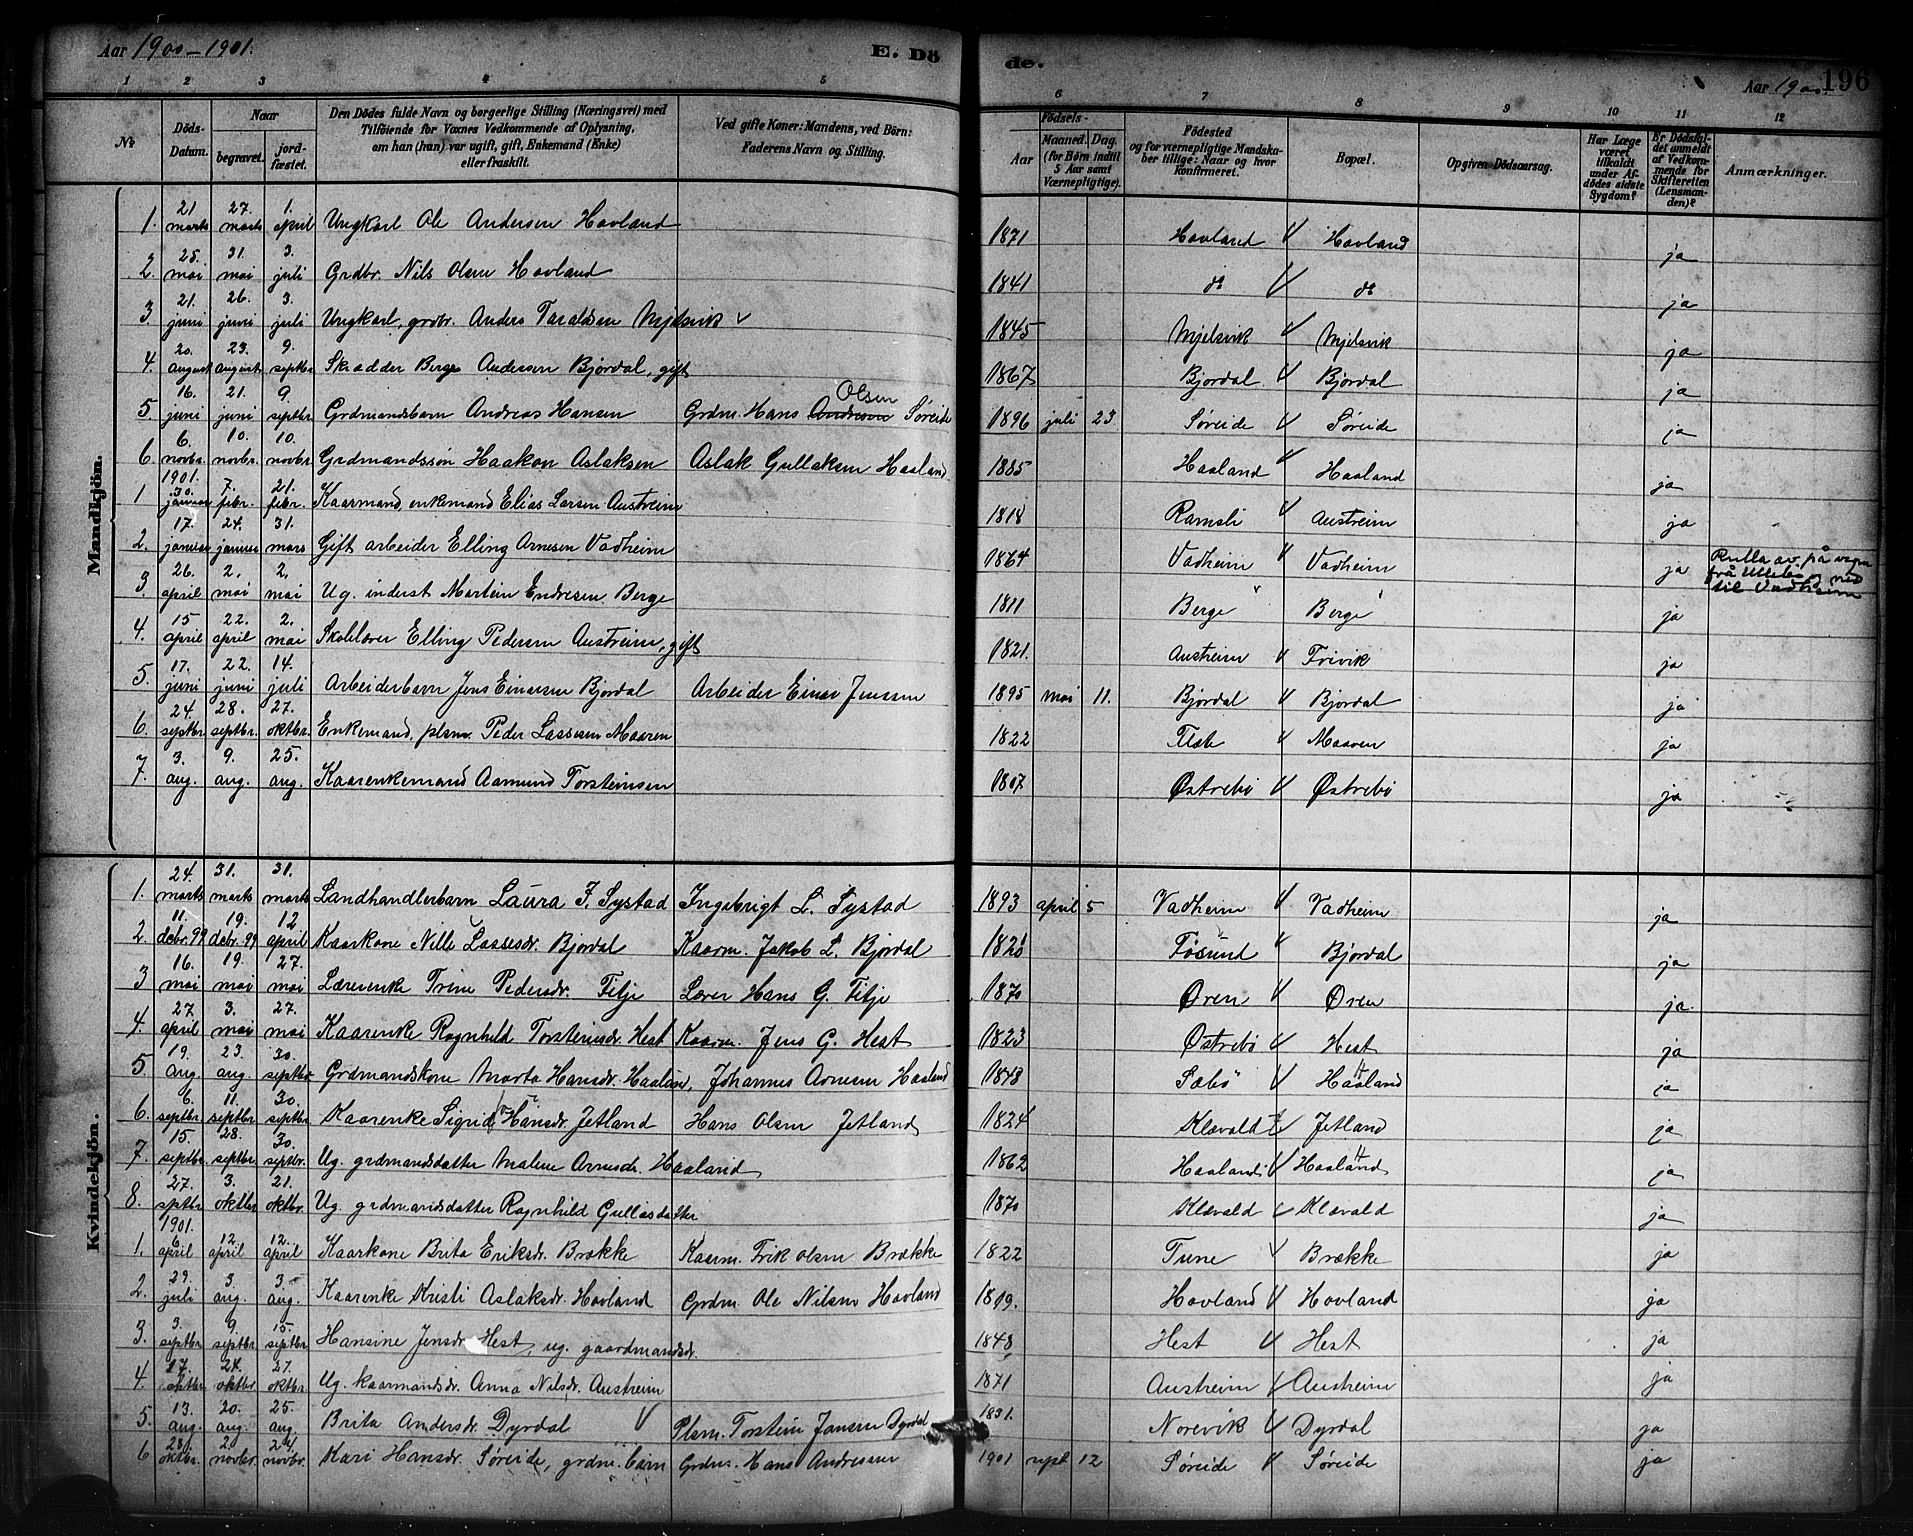 Aar 1900–1901. E. Dö de. Aar 1900 196
1 2 3 4 5 6 7 8 9 10 11 12
№ Döds-Datum. Naar begravet. jordfæstet. Den Dödes fulde Navn og borgerlige Stilling (Næringsvei) med Tilföiende for Voxnes Vedkommende af Oplysning, om han (hun) var ugift, gift, Enkemand (Enke) eller fraskilt. Ved gifte Koner: Mandens, ved Börn: Faderens Navn og Stilling. Födsels- Aar Maaned. Dag. (for Börn indtil 5 Aar samt Værnepligtige). Födested og for værnepligtige Mandskaber tillige: Naar og hvor konfirmeret. Bopæl. Opgiven Dödsaarsag. Har Læge været tilkaldt under Afdödes sidste Sygdom? Er Dödsfaldet anmeldt af Vedkommende for Skifteretten (Lensmanden)? Anmærkninger.
Mandkjön.
1. 21 marts 27. marts 1. april Ungkarl Ole Andersen Hovland 1871 Hovland Hovland ja
2. 25. mai 31. mai 3. juli Grdbr. Nils Olsen Hovland 1841 do do ja
3. 21. juni 26. juni 3. juli Ungkarl, grdbr. Anders Taraldsen Mjelsvik 1845 Mjelsvik Mjelsvik ja
4. 20. august 23. august 9. septbr Skrædder Berge Andersen Bjordal, gift 1867 Bjordal Bjordal ja
5. 16. juni 21. juni 9. septbr Grdmandsbarn Andreas Hansen Grdm. Hans Andresen Olsen Søreide 1896 juli 23 Søreide Søreide ja
6. 6. novbr. 10. novbr. 10. novbr Grdmandssøn Haakon Aslaksen Aslak Gullaksen Haaland 1885 Haaland Haaland ja
1901.
1 30. januar 7. febr. 21. febr. Kaarmand, enkemand Elias Larsen Austreim 1818 Ramsli Austreim ja
2. 17. januar 24. januar 31. mars Gift arbeider Elling Arnesen Vadheim 1864 Vadheim Vadheim ja Rulla av på vegen frå Ullebø og ned til Vadheim
3 26. april 2. mai 2. mai Ug. inderst Martein Endresen Berge 1811 Berge Berge ja
4. 15 april 22. april 2. mai Skolelærer Elling Pedersen Austreim, gift 1821. Austreim Trivik ja
5. 17. juni 22. juni 14. juli Arbeiderbarn Jens Einarsen Bjordal Arbeider Einar Jenssen 1895 mai 11. Bjordal Bjordal ja
6. 24. septbr 28. septbr. 27. oktbr. Enkemand, plsm. Peder Lassesen Maaren 1822 Maaren ja
7. 3. aug. 9. aug. 25. aug. Kaarenkemand Aamund Torsteinsen 1807 Østrebø Østrebø ja
Kvindekjön.
1. 24. marts 31. marts 31. marts Landhandlerbarn Laura I. Systad Ingebrigt L. Systad 1893 april 5 Vadheim Vadheim ja
2. 11. debr. 99 19. debr. 99 12 april Kaarkone Nille Lassesdr. Bjordal Kaarm. Jakob L. Bjordal 1820 Føsund Bjordal ja
3 16. mai 19. mai 27. mai Lærerenke Trine Pedersdr. Titje Lærer Hans G. Titje 1870 Øren Øren ja
4. 27. april 3. mai 27. mai Kaarenke Ragnhild Torsteinsdr. Hest Kaarm. Jens G. Hest 1823 Østrebø Hest ja
5. 19. aug. 23. aug 30. septbr Grdmandskone Marta Hansdr. Haaland, Johannes Arnesen Haaland 1848 Sæbø Haaland ja
6. 6. septbr 11. septbr 30. septbr Kaarenke Sigrid Hansdr. Jetland Hans Olsen Jetland 1824 Klævald Jetland ja
7. 15. septbr. 28. septbr. 30. septbr. Ug. grdmandsdatter Malene Arnesdr. Haaland 1862 Haaland Haaland ja
8. 27. sptbr 3. oktbr 21. oktbr. Ug. grdmandsdatter Ragnhild Gullasdatter 1870 Klævald Klævald ja
1901.
1. 6. april 12. april 12. april Kaarkone Brita Eriksdr. Brække Kaarm. Erik Olsen Brække 1822 Tune Brække ja
2. 29. juli 3. aug. 3. aug. Kaarenke Kristi Aslaksdr. Hovland Grdm. Ole Nilsen Hovland 1819. Hovland Hovland ja
3. 3. septbr 9. septbr 15. septbr Hansine Jensdr. Hest, ug. gaardmandsdr. 1848 Hest Hest ja
4. 17. oktbr 24. oktbr 27. oktbr. Ug. kaarmandsdr. Anna Nilsdr. Austreim 1871 Austreim Austreim ja
5 13. aug. 20. aug. 25. aug. Brita Andersdr. Dyrdal Plsm. Torstein Jansen Dyrdal 1831. Norevik Dyrdal ja
6 28. oktbr. 2. novbr. 24. novbr. Kari Hansdr. Søreide, grdm. barn Grdm. Hans Andresen 1901 sept. 12 Søreide Søreide ja